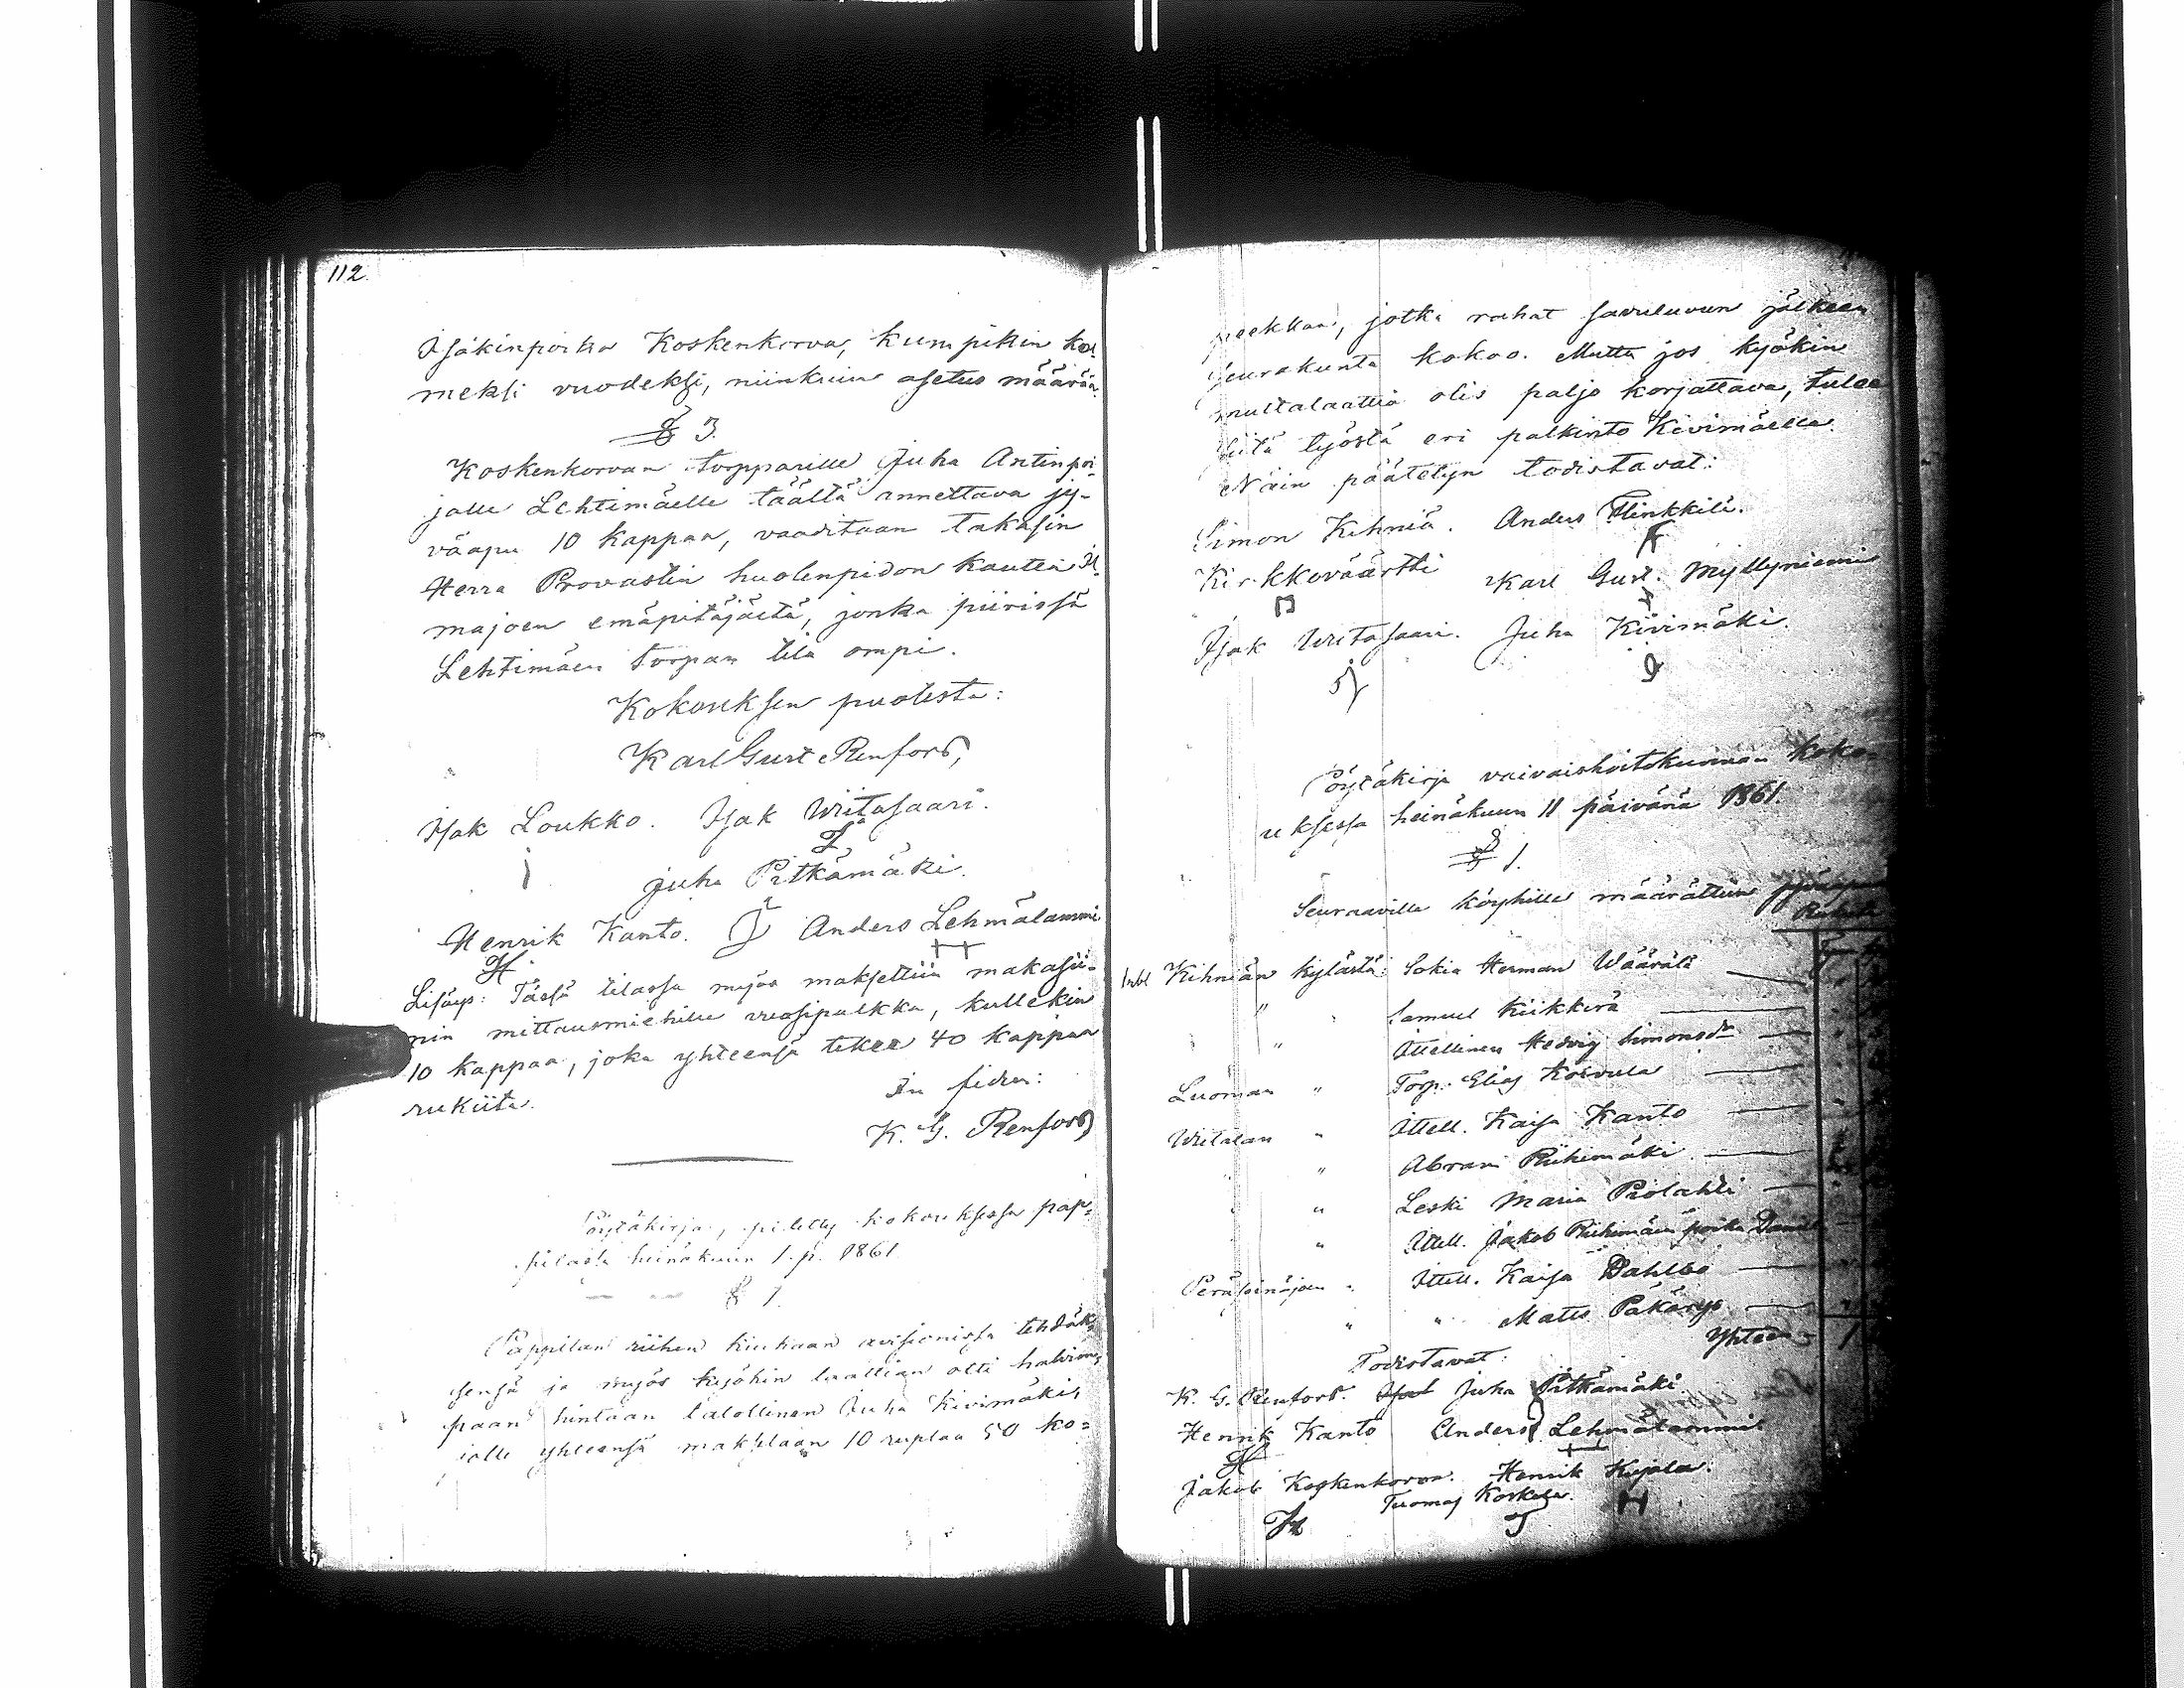 112.
Isäkinpoika Koskenkorva, kumpikin kol-
meksi vuodeksi, niinkuin asetus määrää.
§ 3.
Koskenkorvan torpparille Juha Antinpoi-
jalle Lehtimäelle täältä annettava jy-
väapu 10 kappaa, vaaditaan takasin
Herra Provastin huolenpidon kautta Il-
majoen emäpitäjästä, jonka piirissä
Lehtimäen torpan tila ompi.
Kokouksen puolesta:
Karl Gust Renfors,
Isak Loukko. Isak Wiitasaari.
Juha Pitkämäki.
Henrik Kanto. Anders Lehmälammi
Lisäys: Tässä tilassa myös maksettiin makasii-
nin mittausmiehille vuosipalkka, kullekin
10 kappaa, joka yhteensä tekee 40 kappaa
rukiita.
In fidem:
K. G. Renfors
Pöytäkirja, pidetty kokouksessa pap-
pilassa heinäkuun 1. p. 1861
§ 1.
Pappilan riihen kiukaan tehdäk-
sensä ja myös kyökin laattian otti halvim-
paan hintaan talollinen Juha Kivimäki,
jolle yhteensä maksetaan 10 ruplaa 50 ko-
peekkaa, jotka rahat savuluvun jälkeen
seurakunta kokoo. Mutta jos kyökin
multalaattia olis paljo korjattava, tulee
siitä työstä eri palkinto Kivimäelle.
Näin päätetyn todistavat:
Simon Kihniä. Anders Hinkkilä.
Kirkkoväärtti Karl Gust. Myllyniemi
Isak Wiitasaari. Juha Kivimäki.
Pöytäkirja vaivaishoitokunnan koko-
uksessa heinäkuun 11 päivänä 1861.
§ 1.
Seuraaville köyhille määrättiin
Kihniän kylästä: Sokia Herman Wäärälä
" Samuel Kiikkerä
" Itellinen Hedvig Simonsdr
Luoman " Torp. Elias Koivula
Wiitalan " Itell. Kaisa Kanto
" Abram Riihimäki
" Leski Maria Piölahti
" Itell. Jakob Riihimäen poika Daniel
Peräseinäjoen " Itell. Kaisa Dahlbo
" " Matts Päkärys
Yhteensä 1
Todistavat:
K. G. Renfors. Juha Pitkämäki.
Henrik Kanto Anders Lehmälammi
Jakob Koskenkorva. Henrik Kujala.
Tuomas Koskela.